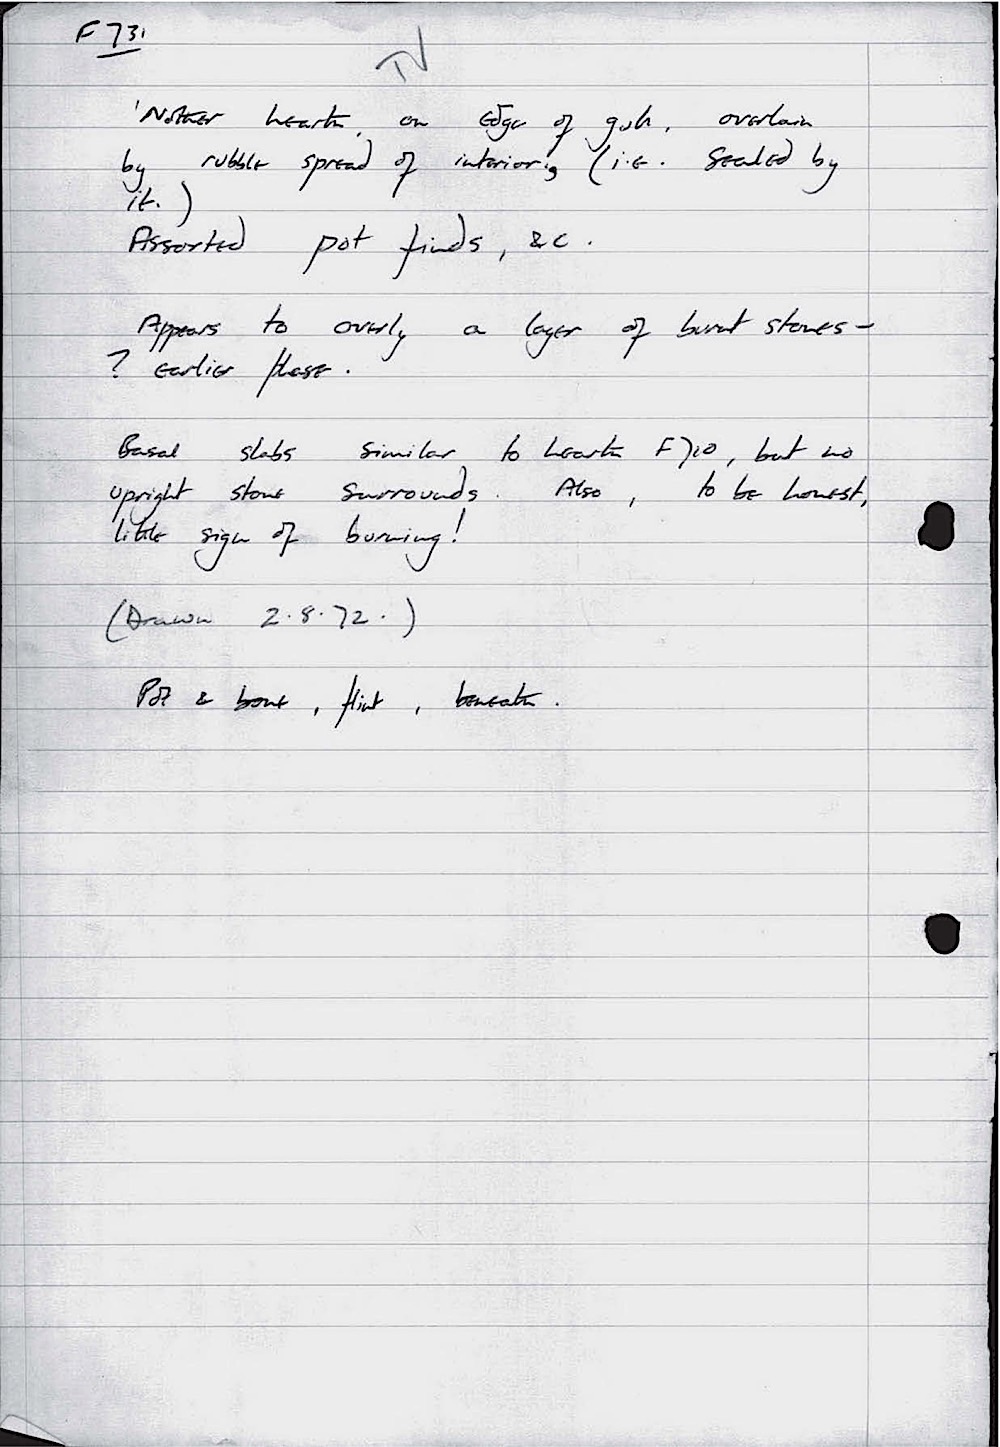 F731
IV
'Nother hearth, on edge of gully, overlain
by rubble spread of interior, (i.e. sealed by
it.)
Assorted pot finds, &c.
Appears to overly a layer of burnt stones -
? earlier phase.
Basal slabs similar to hearth F710, but no
upright stone surrounds. Also, to be honest,
little sign of burning!
(Drawn 2.8.72.)
Pot & bone, flint, beneath.